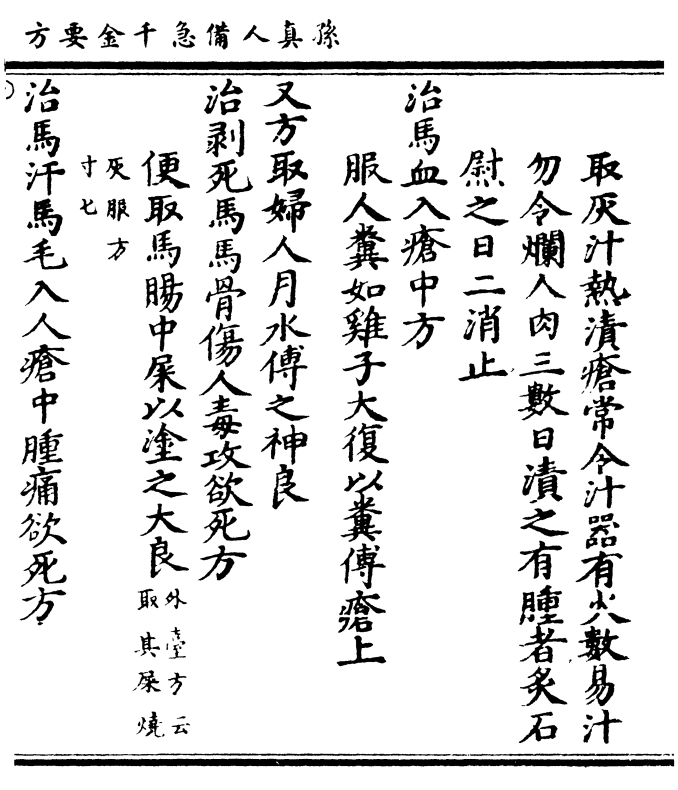 孫真人備急千金要方
取灰汁熱漬瘡常令汁器有火數易汁
勿令爛人肉三數日漬之有腫者炙石
慰之日二消止
治馬血入瘡中方
服人糞如雞子大復以糞傅瘡上
又方取婦人月水傅之神良
治剥死馬馬骨傷人毒攻欲死方
便取馬腸中屎以塗之大良外臺方云
取其屎燒
灰服方
寸七
治馬汗馬毛入人瘡中腫痛欲死方